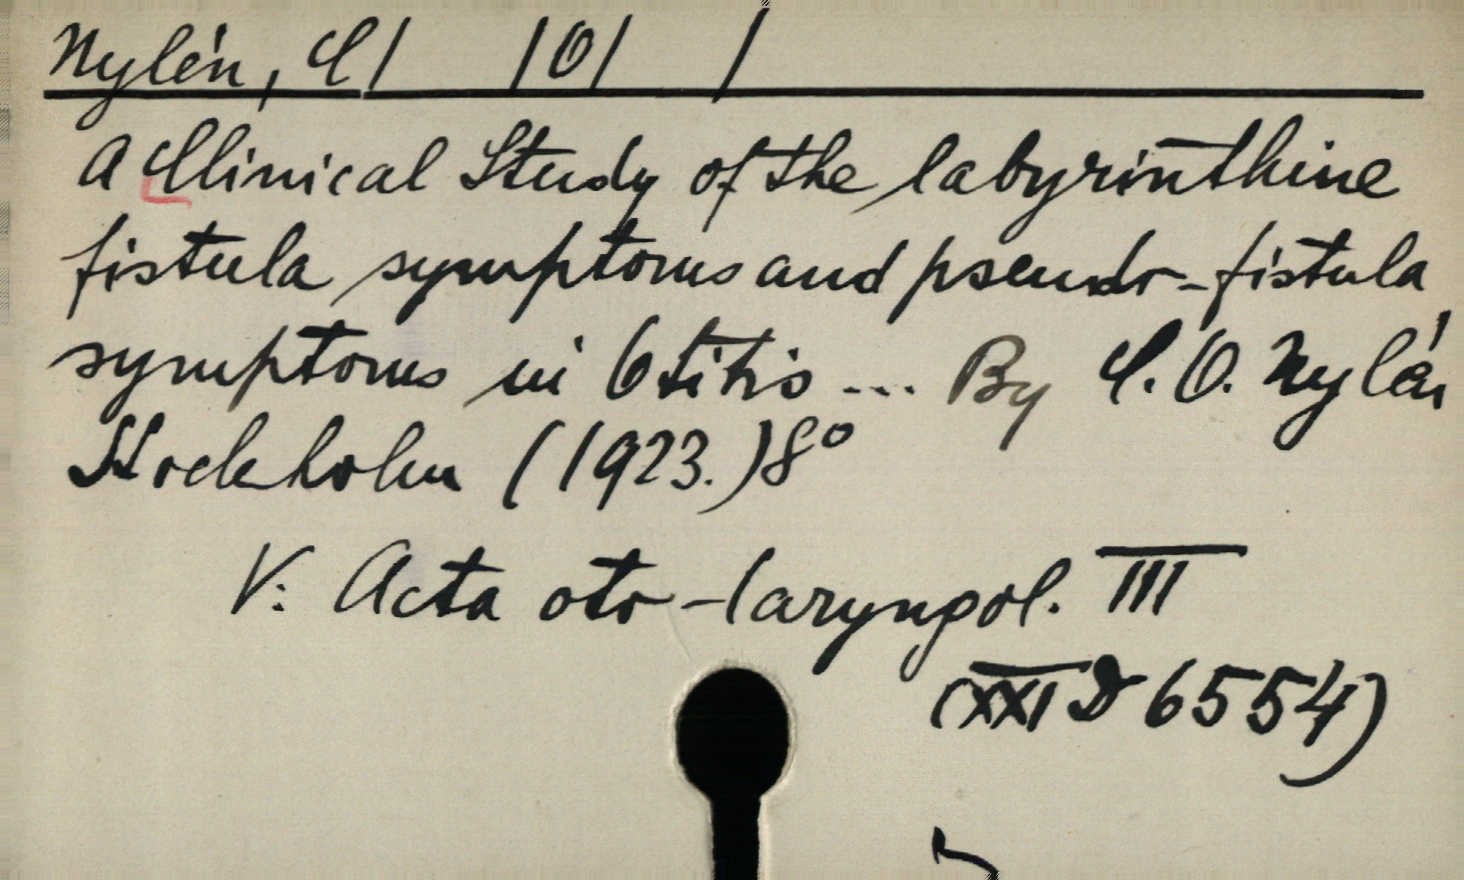 Nylén, C/ /O/ /
A Clinical Study of the labyrinthine
fistula symptoms and pseudo-fistula
symptoms in Otitis ... By C. O. Nylén
Stockholm (1923.) 8°
V: Acta oto-laryngol. III
(XXI D 6554)